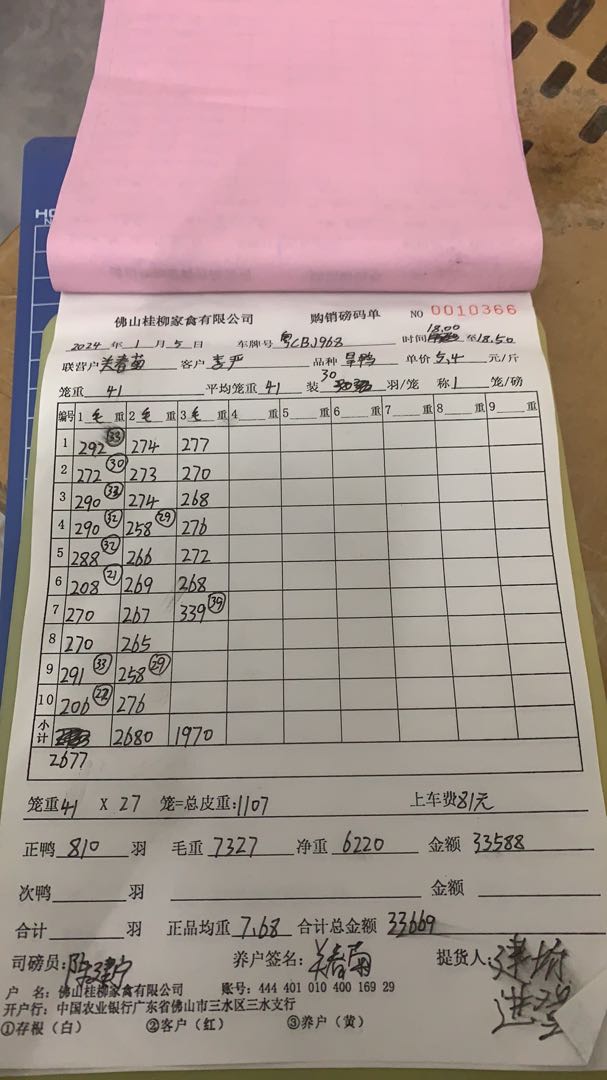 佛山桂柳家食有限公司 购销磅码单 NO 0010366
2024年1月5日 车牌号 粤CBJ968 时间 18.00 至 18.50
联营户 关春苗 客户 李严 品种 旱鸭 单价 5.4 元/斤
笼重 41 平均笼重 41 装 30 羽/笼 称 1 笼/磅
编号 1 毛 重 2 毛 重 3 毛 重 4 重 5 重 6 重 7 重 8 重 9 重
1 292 (33) 274 277
2 272 (30) 273 270
3 290 (33) 274 268
4 290 (32) 258 (29) 276
5 288 (32) 266 272
6 208 (21) 269 268
7 270 267 339 (39)
8 270 265
9 291 (33) 258 (29)
10 206 (22) 276
小计 2680 1970
2677
笼重 41 X 27 笼=总皮重:1107 上车费 81元
正鸭 810 羽 毛重 7327 净重 6220 金额 33588
次鸭 羽 金额
合计 羽 正品均重 7.68 合计总金额 33669
司磅员: 养户签名: 提货人:
户 名: 佛山桂柳家食有限公司 账号: 444 401 010 400 169 29
开户行: 中国农业银行广东省佛山市三水区三水支行
①存根（白） ②客户（红） ③养户（黄）